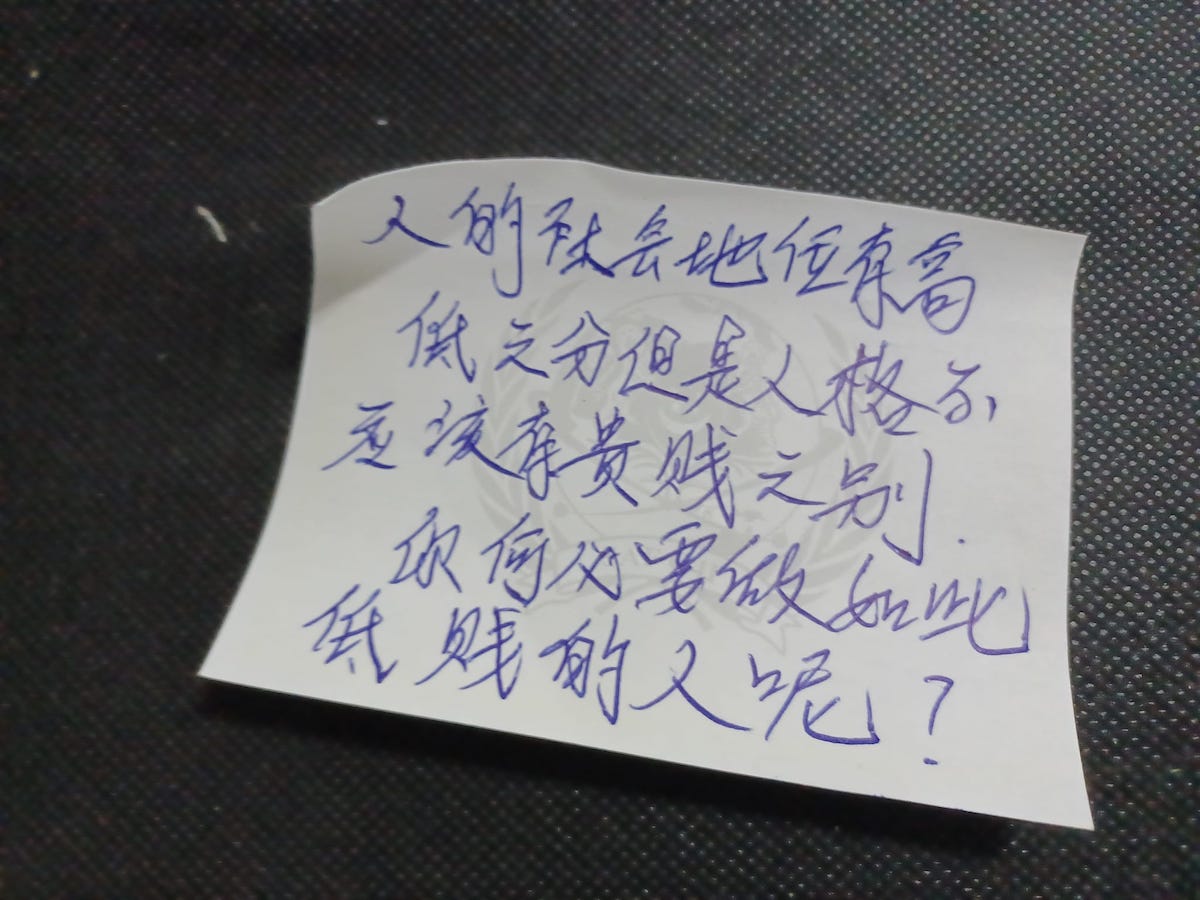 人的社会地位有高
低之分但是人格不
应该有贵贱之别.
你何必要做如此
低贱的人呢？